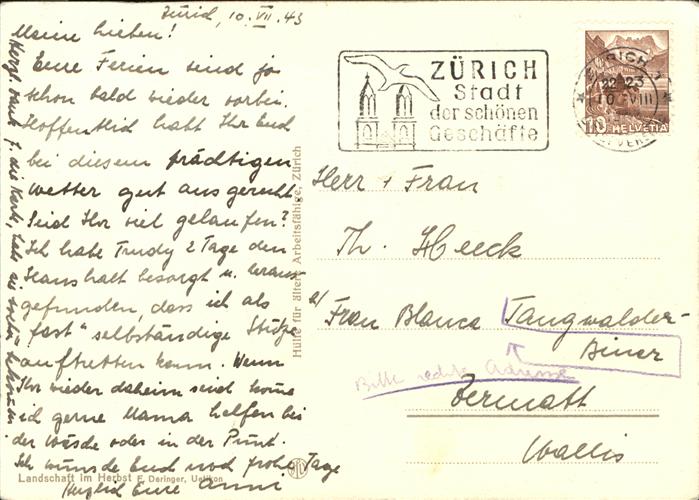 Zürich, 10. VII. 43
Meine Lieben!
Eure Ferien sind ja
schon bald wieder vorbei.
Hoffentlich habt Ihr Euch
bei diesem prächtigen
Wetter gut ausgeruht.
Seid Ihr viel gelaufen?
Ich habe Trudy 2 Tage den
Haushalt besorgt u. heraus-
gefunden, dass ich als
"fast" selbständige Stütze
auftretten kann. Wenn
Ihr wieder daheim seid komme
ich gerne Mama helfen bei
der Wäsche oder in der Punt.
Ich wünsche Euch noch frohe Tage
Herzlich Eure Anni
Herzl. Dank f. die Karte, hab sie
ZÜRICH
Stadt
der schönen
Geschäfte
ZÜRICH 1
22-23
10 VIII
10 HELVETIA
Hülfe für ältere Arbeitsfähige, Zürich
Herr & Frau
Th. Heeck
a/ Frau Blanca Taugwalder-
Biner
Bitte rechte Adresse
Zermatt
Wallis
Landschaft im Herbst E. Deringer, Uetikon